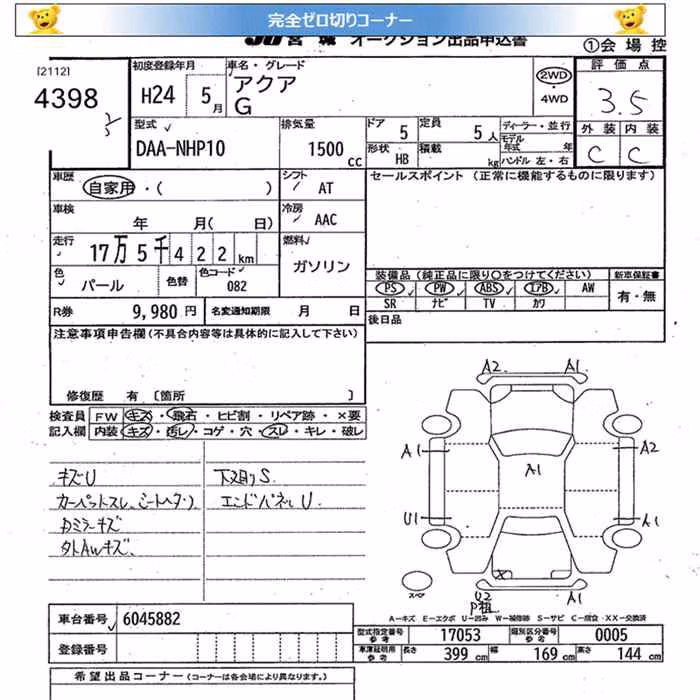 完全ゼロ切りコーナー
オークション出品申込書
①会 場 控
[2112]
4398
初度登録年月
H24 5月
車名・グレード
アクア
G
2WD
・
4WD
評 価 点
3.5
外 装 内 装
C C
型式
DAA-NHP10
排気量
1500 cc
ドア 5
定員 5人
形状 HB
積載 kg
ディーラー・並行
モデル年式 年
ハンドル 左・右
車歴
自家用・( )
シフト
AT
セールスポイント (正常に機能するものに限ります)
車検
年 月( 日)
冷房
AAC
走行
17万5千422km
燃料
ガソリン
色
パール
色替
色コード
082
装備品(純正品に限り○をつけてください)
PS PW ABS エアB AW
SR ナビ TV カワ
新車保証書
有・無
R券
9,980 円
名変通知期限 月 日
後日品
注意事項申告欄(不具合内容等は具体的に記入して下さい)
修復歴 有 [箇所 ]
検査員記入欄
FW キズ・飛石・ヒビ割・リペア跡・×要
内装 キズ・汚レ・コゲ・穴・スレ・キレ・破レ
キズU
カーペットスレ、シートヘタリ
Dミラーキズ
外AWキズ
下廻りS
エンドパネルU
A2 A1
A1 A2
A1
U1 A1
X
U2
P祖
A1
スペア
A-キズ E-エクボ U-凹み W-補修跡 S-サビ C-腐食・XX-交換済
車台番号 6045882
登録番号
型式指定番号参考 17053
類別区分番号参考 0005
車庫証明用参考 長さ 399 cm 幅 169 cm 高さ 144 cm
希望出品コーナー(コーナーは各会場により異なります)